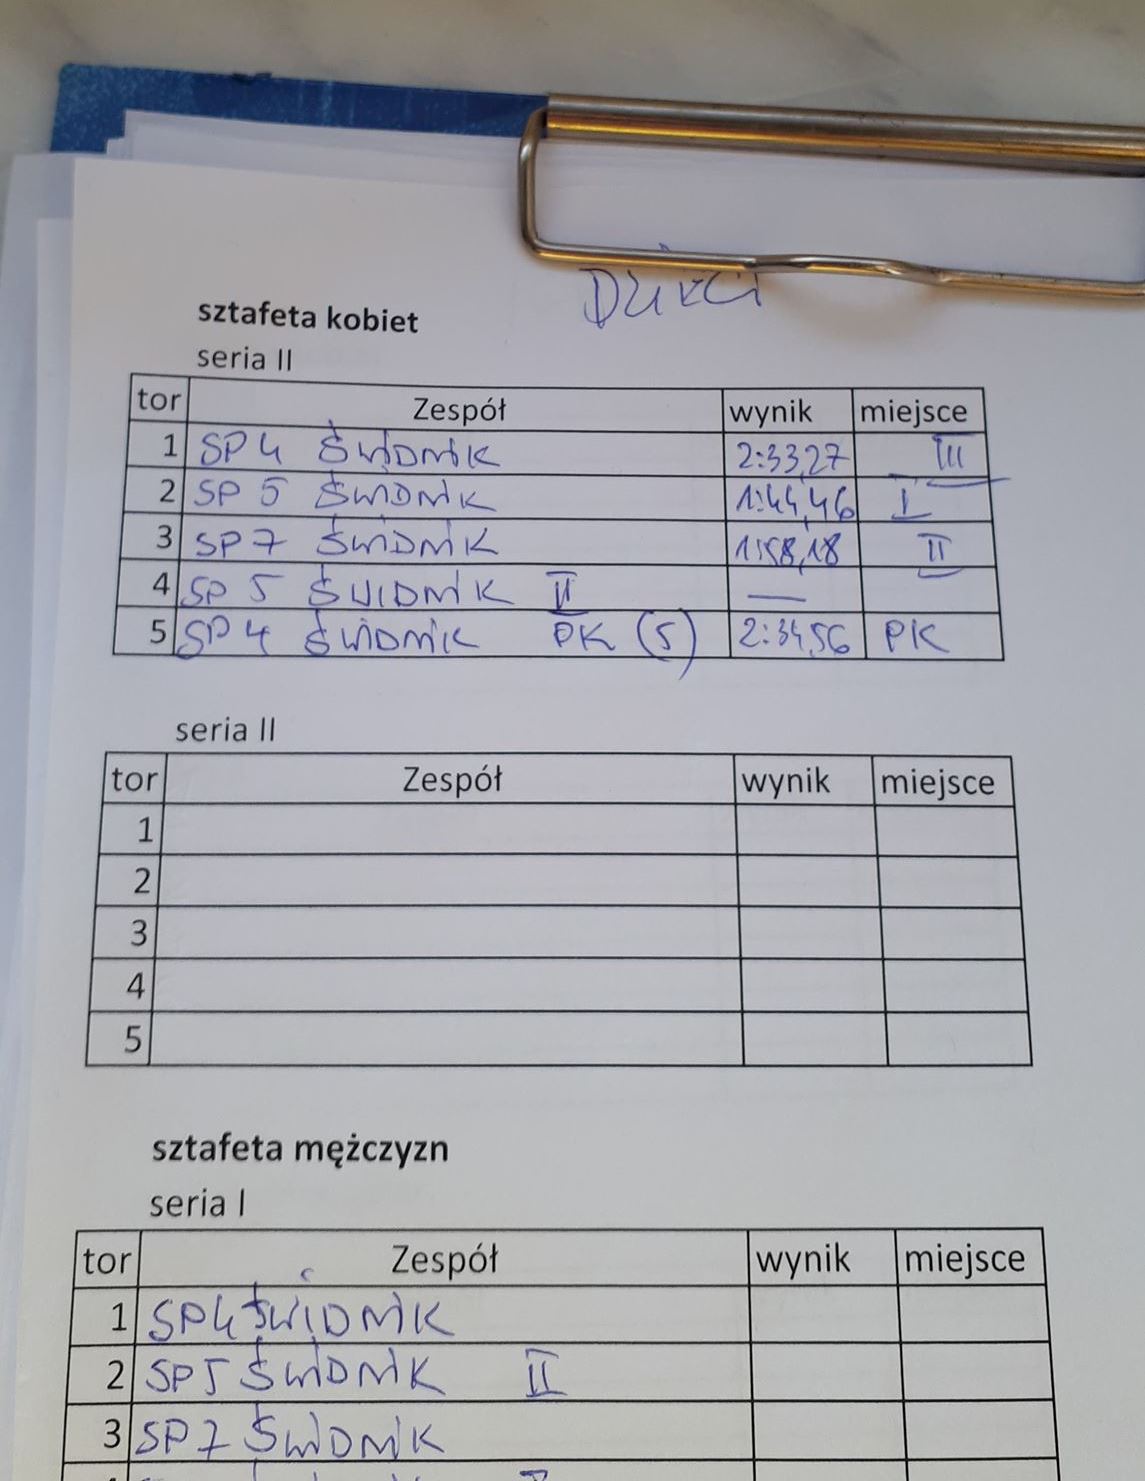 Dzieci
sztafeta kobiet
seria II
tor Zespół wynik miejsce
1 SP 4 ŚWIDNIK 2:33,27 III
2 SP 5 ŚWIDNIK 1:44,46 I
3 SP 7 ŚWIDNIK 1:58,18 II
4 SP 5 ŚWIDNIK II —
5 SP 4 ŚWIDNIK PK (5) 2:34,56 PK
seria II
tor Zespół wynik miejsce
1
2
3
4
5
sztafeta mężczyzn
seria I
tor Zespół wynik miejsce
1 SP4 ŚWIDNIK
2 SP5 ŚWIDNIK II
3 SP7 ŚWIDNIK